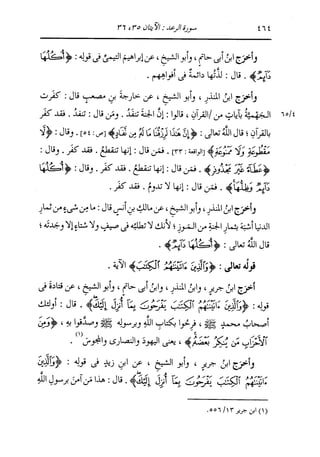 ٤٦٤ سورة الرعد : الآيتان ٣٥، ٣٦
وأخرَج ابنُ أبى حاتمٍ ، وأبو الشيخِ ، عن إبراهيمَ التيمىِّ فى قولِه : ﴿أُكُلُهَا
دَآئِمٌ﴾ . قال : لذَّتُها دائمةٌ فى أفواهِهم .
وأخرَج ابنُ المنذرِ ، وأبو الشيخِ ، عن خارجةَ بنِ مصعبٍ قال : كفَرت
٦٥/٤ الجهميَّةُ بآياتٍ من / القرآنِ ، قالوا : إنَّ الجنةَ تنفَدُ . ومَن قال : تنفَدُ . فقد كفَر
بالقرآنِ ؛ قال اللهُ تعالى : ﴿إِنَّ هَٰذَا لَرِزْقُنَا مَا لَهُ مِن نَّفَادٍ﴾ [ص : ٥٤] . وقال : ﴿لَّا
مَقْطُوعَةٍ وَلَا مَمْنُوعَةٍ﴾ [الواقعة : ٣٣] . فمَن قال : إنها تنقطِعُ . فقد كفَر . وقال :
﴿عَطَآءً غَيْرَ مَجْذُوذٍ﴾ . فمَن قال : إنها تنقطِعُ . فقد كفَر . وقال : ﴿أُكُلُهَا
دَآئِمٌ وَظِلُّهَا﴾ . فمَن قال : إنها لا تدومُ . فقد كفَر .
وأخرَج ابنُ المنذرِ ، وأبو الشيخِ ، عن مالكِ بنِ أنسٍ قال : ما مِن شىءٍ من ثمارِ
الدنيا أشبهُ بثمارِ الجنةِ من الموزِ ؛ لأنك لا تطلبُه فى صيفٍ ولا شتاءٍ إلا وجَدتَه ؛
قال اللهُ تعالى : ﴿أُكُلُهَا دَآئِمٌ﴾ .
قولُه تعالى : ﴿وَالَّذِينَ ءَاتَيْنَٰهُمُ الْكِتَٰبَ﴾ الآية .
أخرَج ابنُ جريرٍ ، وابنُ المنذرِ ، وابنُ أبى حاتمٍ ، وأبو الشيخِ ، عن قتادةَ فى
قولِه : ﴿وَالَّذِينَ ءَاتَيْنَٰهُمُ الْكِتَٰبَ يَفْرَحُونَ بِمَآ أُنزِلَ إِلَيْكَ﴾ . قال : أولئك
أصحابُ محمدٍ ﷺ ، فرِحوا بكتابِ اللهِ وبرسولِه ﷺ وصدَّقوا به ، ﴿وَمِنَ
الْأَحْزَابِ مَن يُنكِرُ بَعْضَهُ﴾ ، يعنى اليهودَ والنصارى والمجوسَ (١) .
وأخرَج ابنُ جريرٍ ، وأبو الشيخِ ، عن ابنِ زيدٍ فى قولِه : ﴿وَالَّذِينَ
ءَاتَيْنَٰهُمُ الْكِتَٰبَ يَفْرَحُونَ بِمَآ أُنزِلَ إِلَيْكَ﴾ . قال : هذا مَن آمَن برسولِ اللهِ
(١) ابن جرير ١٣/ ٥٥٦.